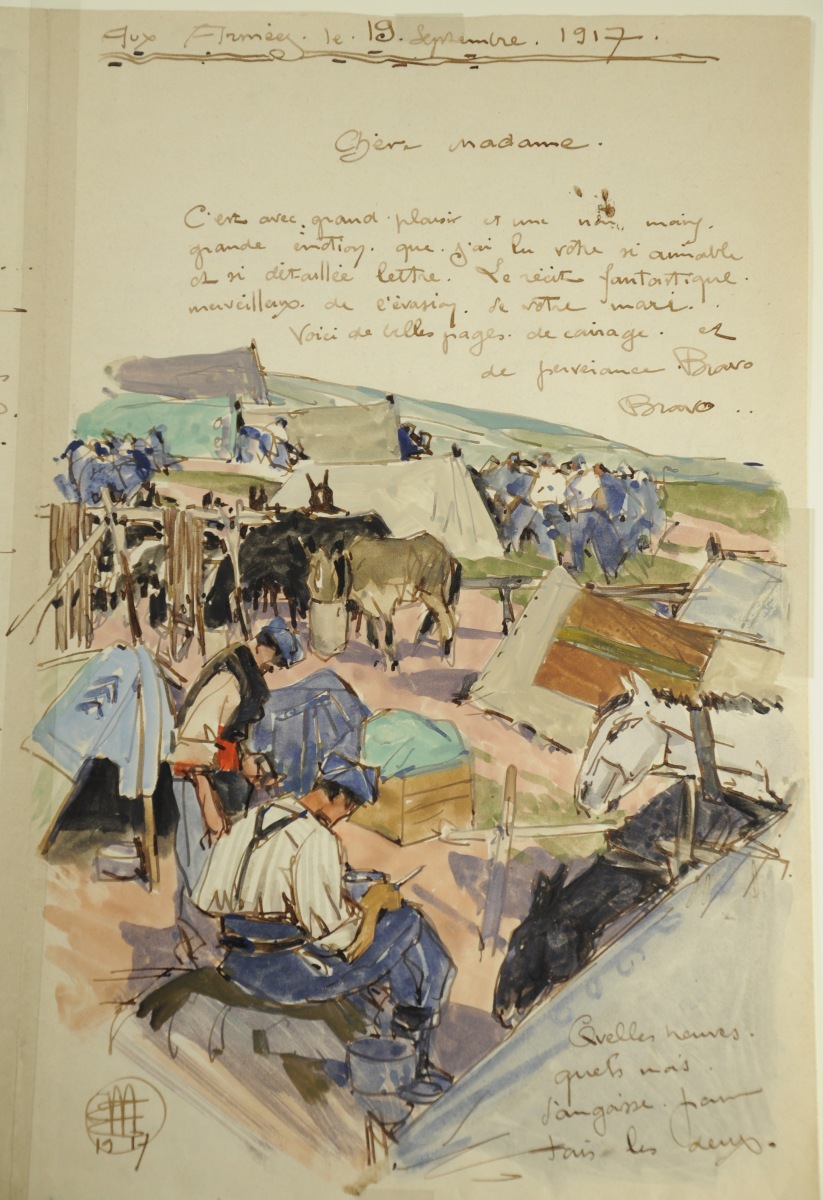 Aux Armées. le. 19. Septembre. 1917.
Chère Madame.
C'est avec grand plaisir et une non moins.
grande émotion. que. j'ai lu votre si aimable
et si détaillée lettre. Le récit fantastique.
merveilleux. de l'évasion. de votre mari.
Voici de belles pages. de courage. et
de Bravo
Bravo ..
Quelles heures.
quels mois.
d'angoisse. pour
les deux.
1917